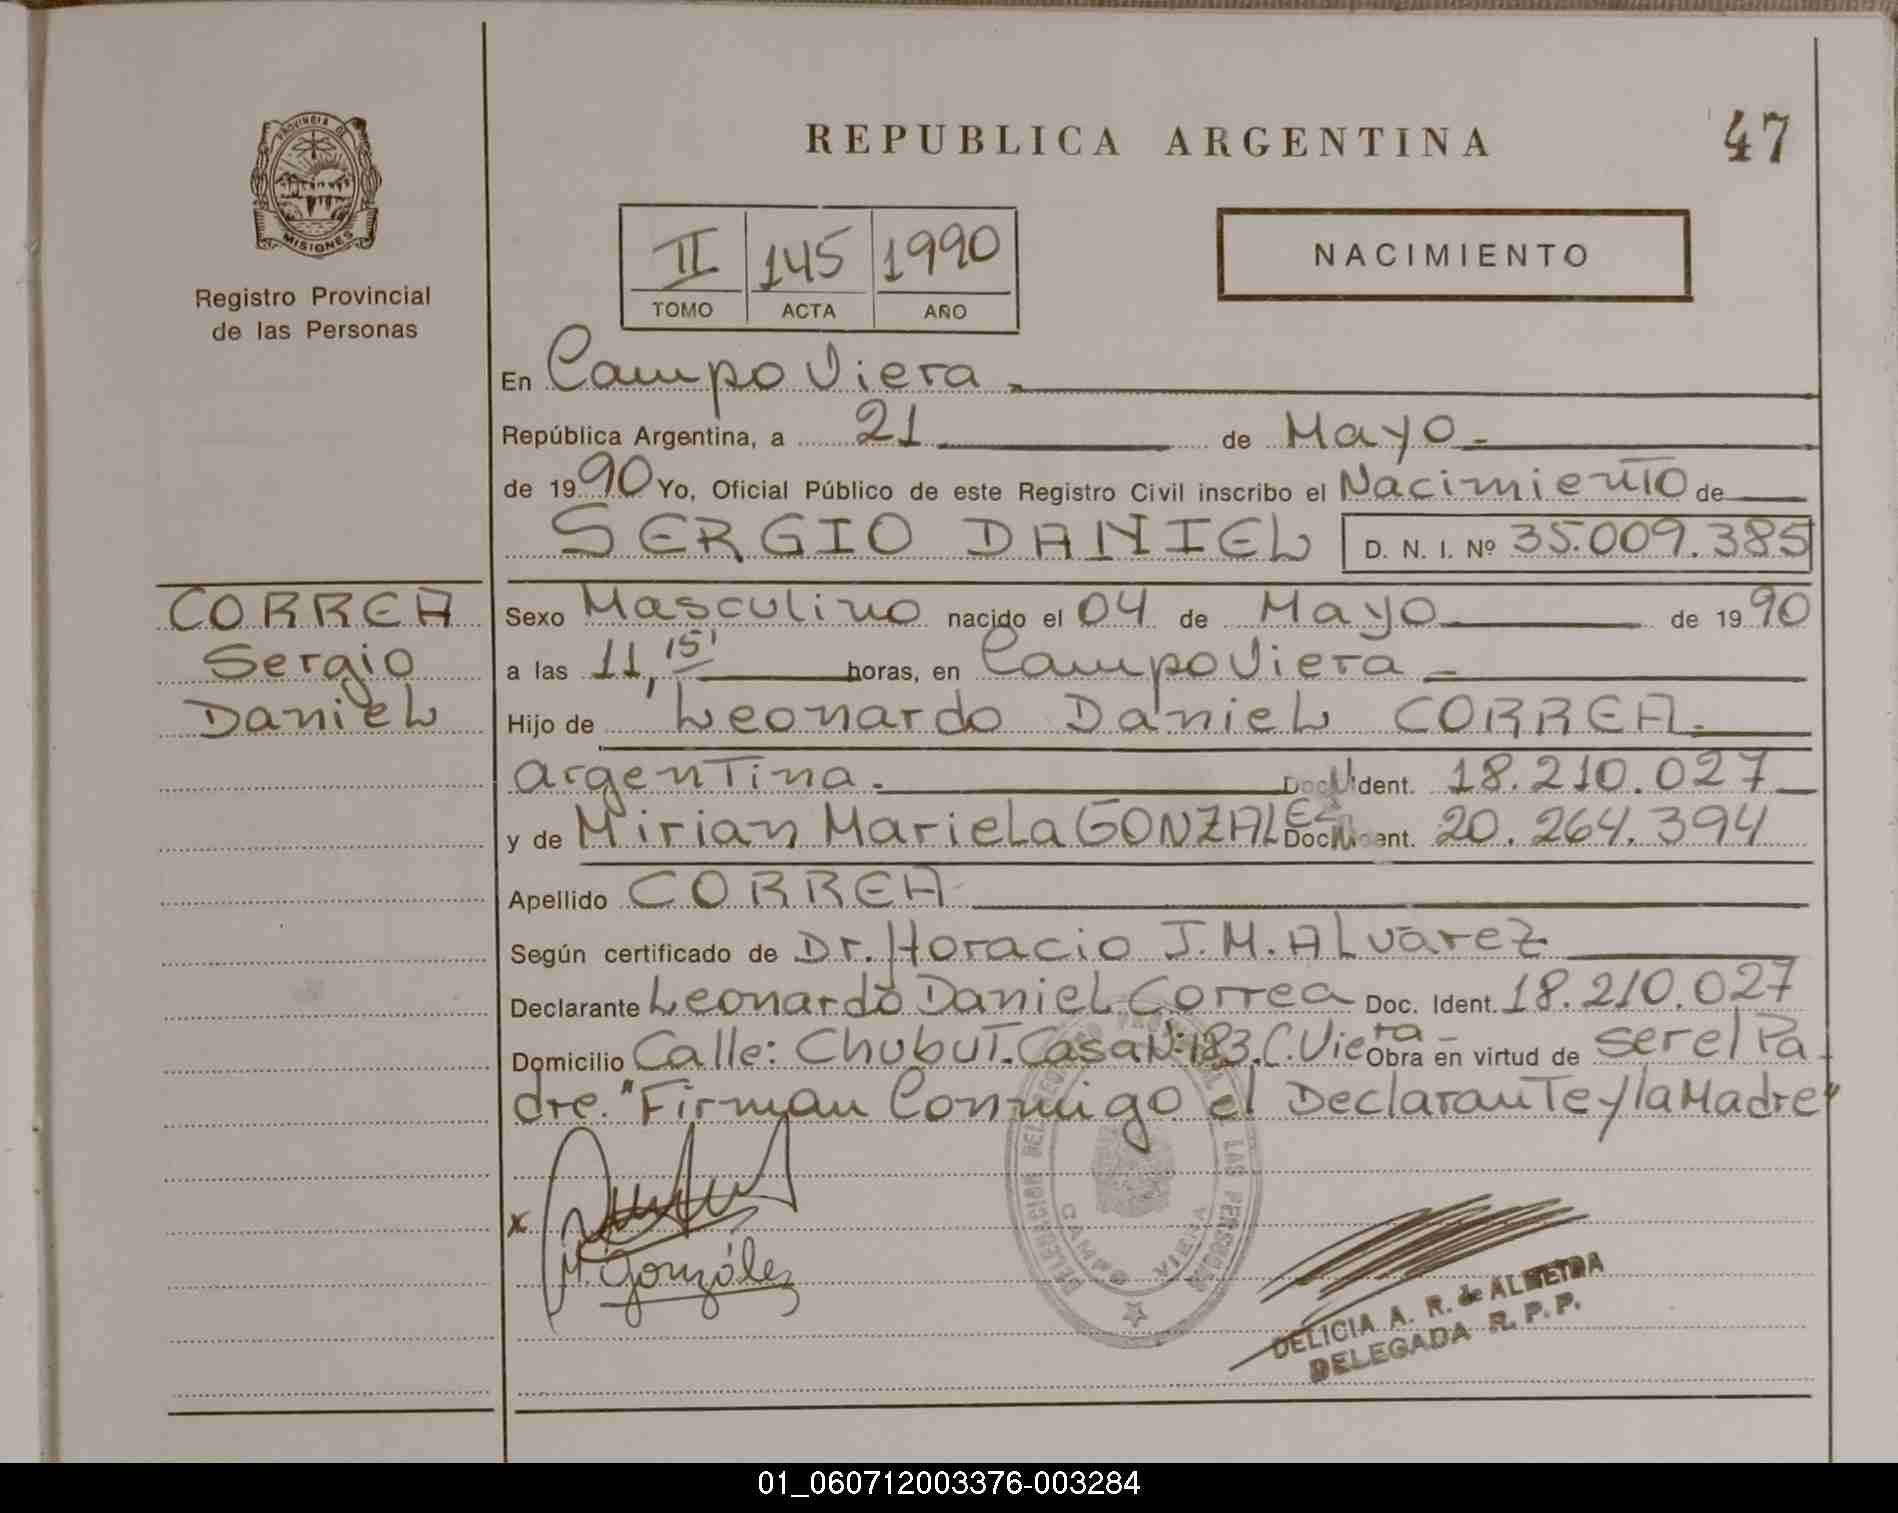 PROVINCIA DE
MISIONES
Registro Provincial
de las Personas
REPUBLICA ARGENTINA
47
II 145 1990
TOMO ACTA AÑO
NACIMIENTO
En Campo Viera.
República Argentina, a 21 de Mayo.
de 1990 Yo, Oficial Público de este Registro Civil inscribo el Nacimiento de
SERGIO DANIEL D. N. I. Nº 35.009.385
CORREA
Sergio
Daniel
Sexo Masculino nacido el 04 de Mayo de 1990
a las 11,15' horas, en Campo Viera
Hijo de Leonardo Daniel CORREA.
argentina. Doc. Ident. 18.210.027
y de Mirian Mariela GONZALEZ Doc. Ident. 20.264.394
Apellido CORREA
Según certificado de Dr. Horacio J.M. Alvarez
Declarante Leonardo Daniel Correa Doc. Ident. 18.210.027
Domicilio Calle: Chubut. Casa Nº 183. C. Viera Obra en virtud de ser el Pa
dre. "Firman Conmigo el Declarante y la Madre"
DELEGACION DEL REGISTRO PROVINCIAL DE LAS PERSONAS
CAMPO VIERA
x
M. González
DELICIA A. R. de ALMEIDA
DELEGADA R. P. P.
01_060712003376-003284